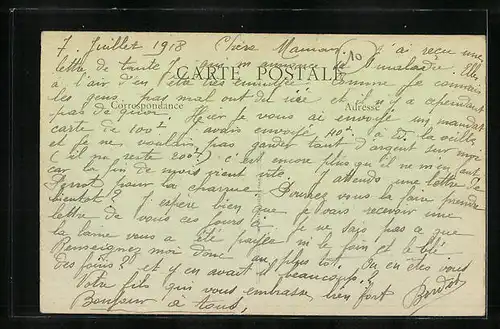 7 Juillet 1918 Chère Maman, J'ai reçu une
lettre de tante J qui m'annonce de maladie. Elle
CARTE POSTALE
a l'air d'en être très ennuyée. Comme je connais
Correspondance Adresse
les gens, pas mal ont du idée et il n'y a cependant
pas de quoi. Hier je vous ai envoyé un mandat
carte de 100 f. J'avais envoyé 40 f. à la
et je ne voulais pas garder tant d'argent sur moi
(il me reste 200 f.) c'est encore plus qu'il ne m'en faut,
car la fin de mois vient vite. J'attends une lettre de
Perrot pour la charrue. Pourrez vous la faire prendre
bientot? J'espère bien que je vais recevoir une
lettre de vous ces jours ci. Je ne sais pas à que
la laine vous a été payée ni le foin et le blé
Renseignez moi donc un peu tôt. Ou en êtes vous
des foins? et y en avait il beaucoup?
Votre fils qui vous embrasse bien fort
Bonjour à tous.
10